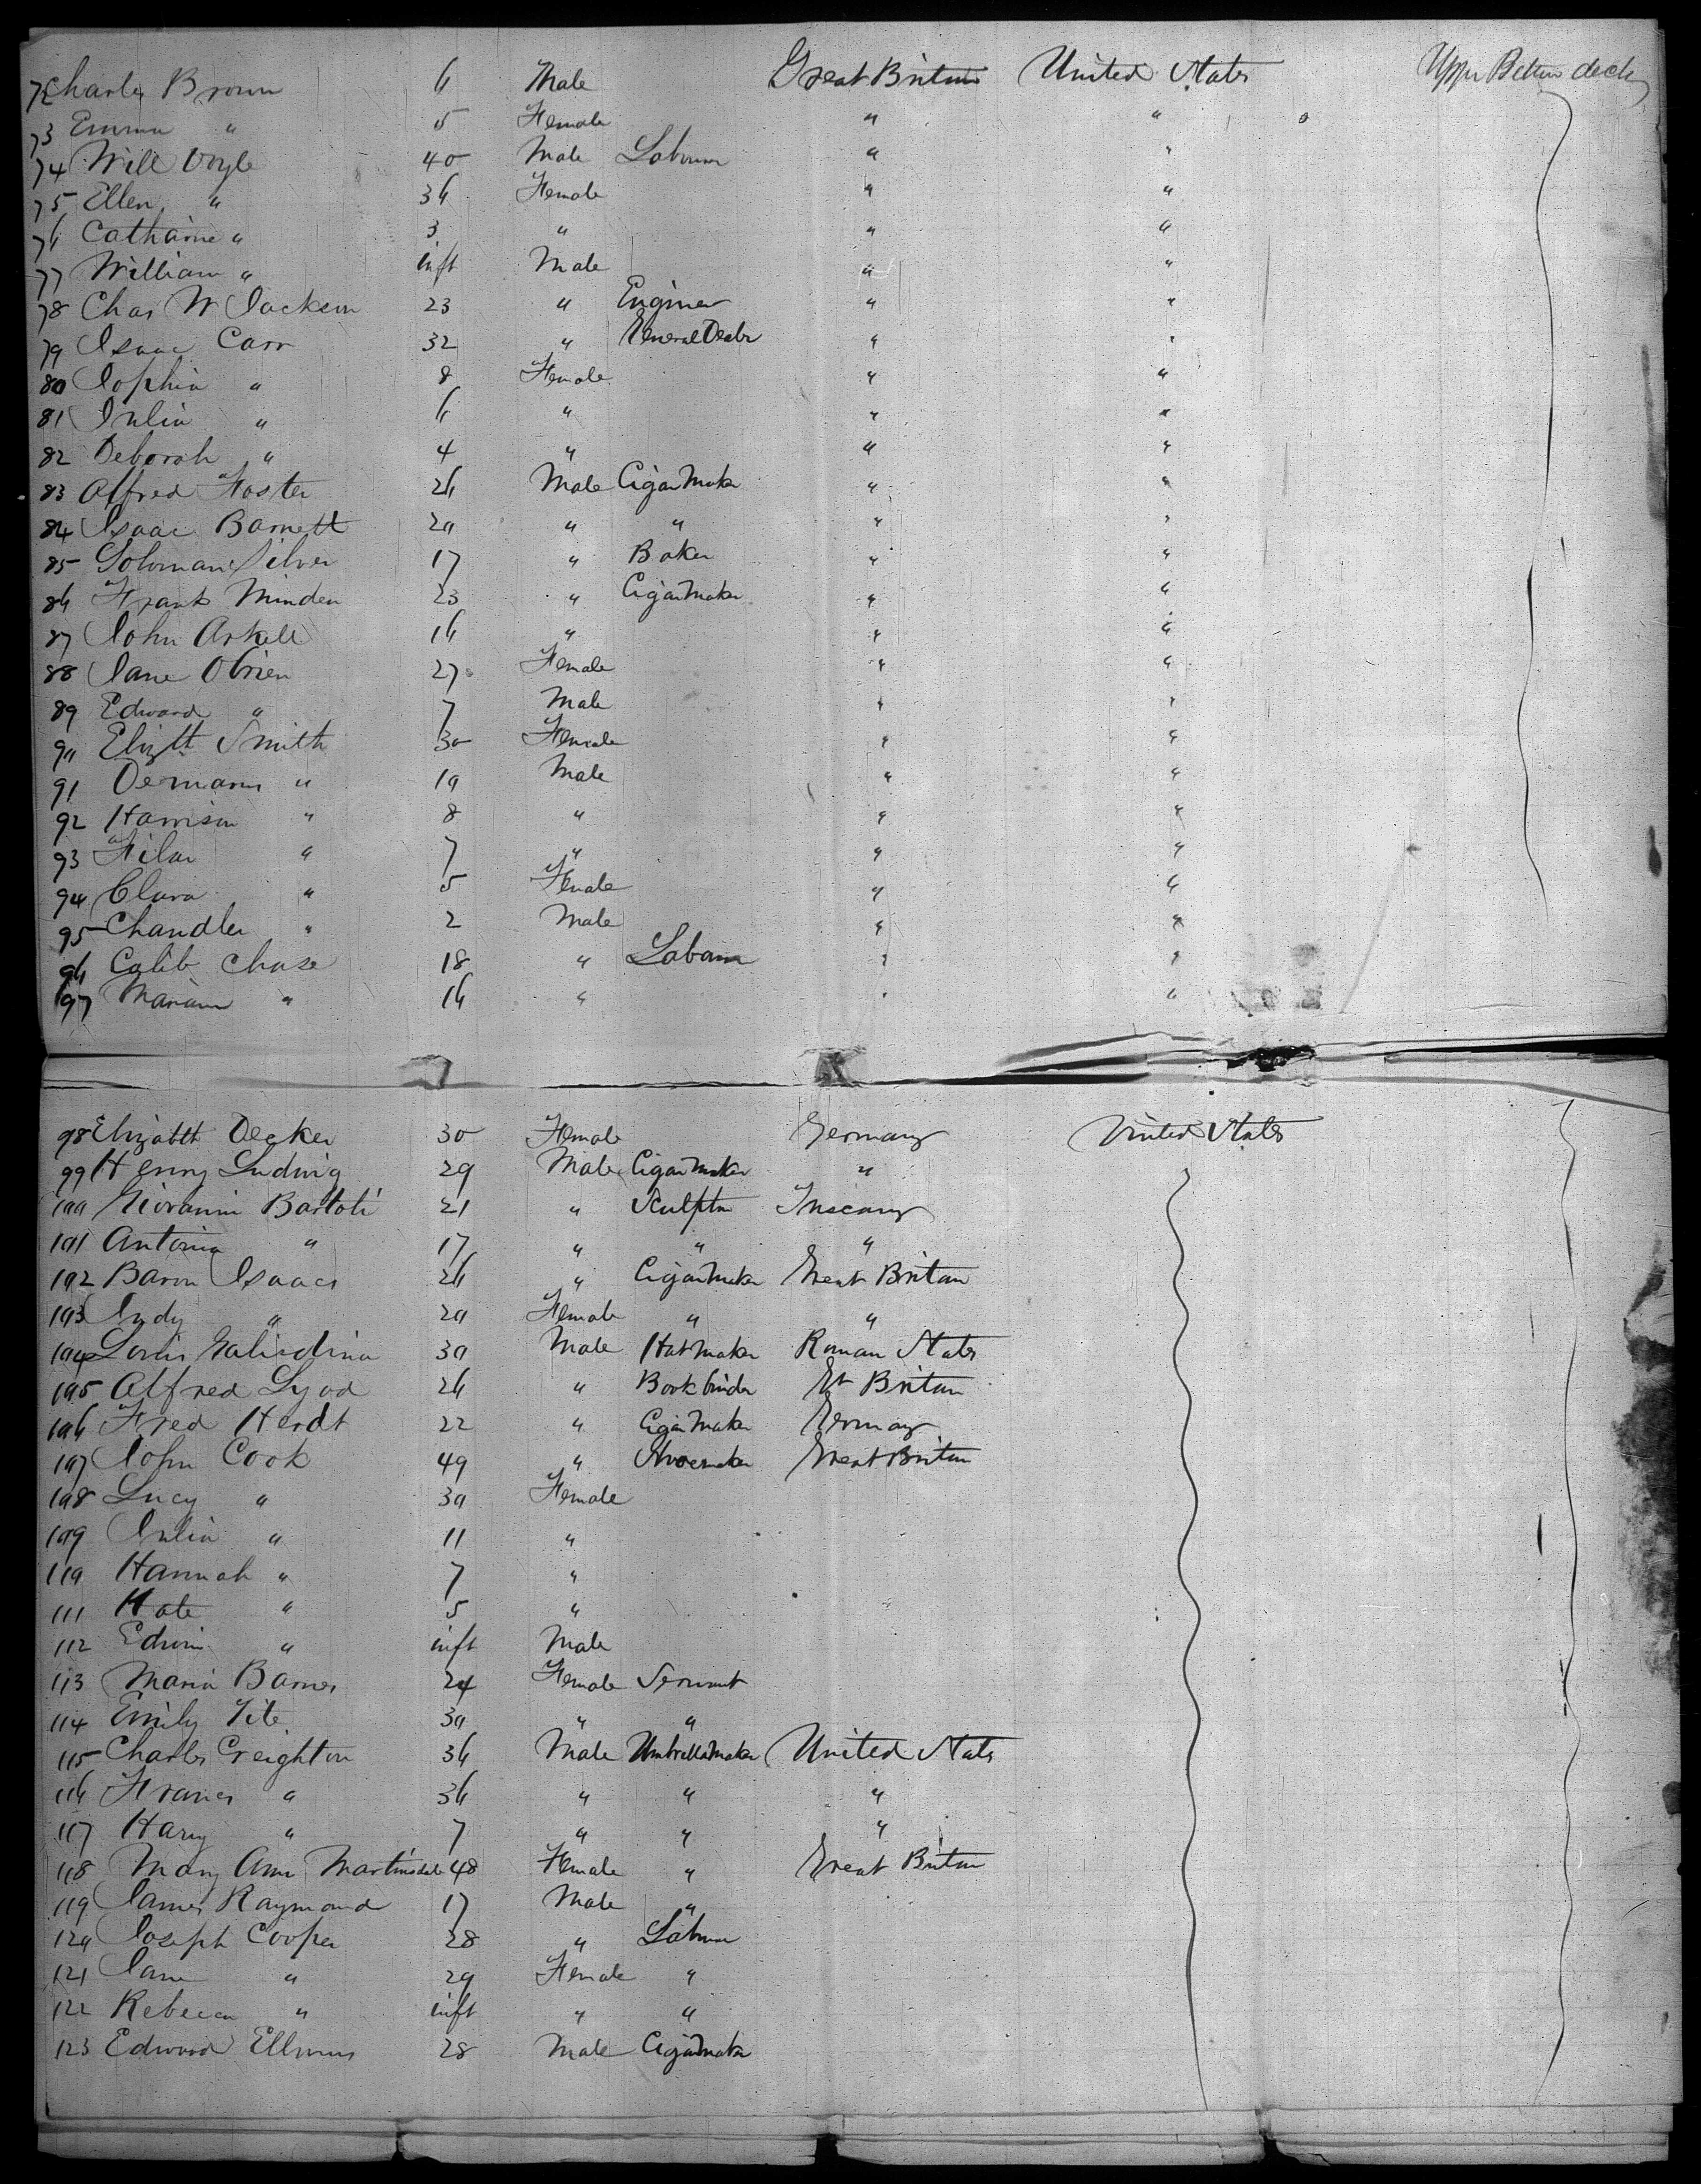 72 Charles Brown 6 Male Great Britain United States Upper Betwn deck
73 Emma " 5 Female " "
74 Will Doyle 40 Male Labourer " "
75 Ellen " 36 Female " "
76 Catharine " 3 " " "
77 William " inft Male " "
78 Chas W Jackson 23 " Engineer " "
79 Isaac Carr 32 " General Dealer " "
80 Sophia " 8 Female " "
81 Julia " 6 " " "
82 Deborah " 4 " " "
83 Alfred Foster 26 Male Cigar Maker " "
84 Isaac Barnett 20 " " " "
85 Soloman Silver 17 " Baker " "
86 Frank Minden 23 " Cigar Maker " "
87 John Arkell 16 " " "
88 Jane OBrien 27 Female " "
89 Edward " 7 Male " "
90 Elizth Smith 30 Female " "
91 " 10 Male " "
92 Harrison " 8 " " "
93 " 7 " " "
94 Clara " 5 Female " "
95 Chandler " 2 Male " "
96 Calib Chase 18 " Labourer " "
97 Mariam " 16 " " "
98 Elizabth Decker 30 Female Germany United States
99 Henry Ludwig 29 Male Cigar Maker "
100 Giovanni Bartoli 21 " Sculptor Tuscany
101 Antonia " 17 " " "
102 Baron Isaacs 26 " Cigar Maker Great Britain
103 Judy " 20 Female " "
104 Louis 30 Male Hat Maker Roman States
105 Alfred Lyod 26 " Book binder Gt Britain
106 Fred Herdt 22 " Cigar Maker Germany
107 John Cook 49 " Shoemaker Great Britain
108 Lucy " 30 Female
109 Julia " 11 "
110 Hannah " 7 "
111 Kate " 5 "
112 Edwin " inft Male
113 Maria Barnes 24 Female Servant
114 Emily Tite 30 " "
115 Charles Creighton 36 Male Umbrella Maker United States
116 Frances " 36 " " "
117 Harry " 7 " " "
118 Mary Ann Martinsdale 48 Female " Great Britain
119 James Raymond 17 Male "
120 Joseph Cooper 28 " Labourer
121 Jane " 29 Female "
122 Rebecca " inft " "
123 Edward 28 Male Cigar Maker